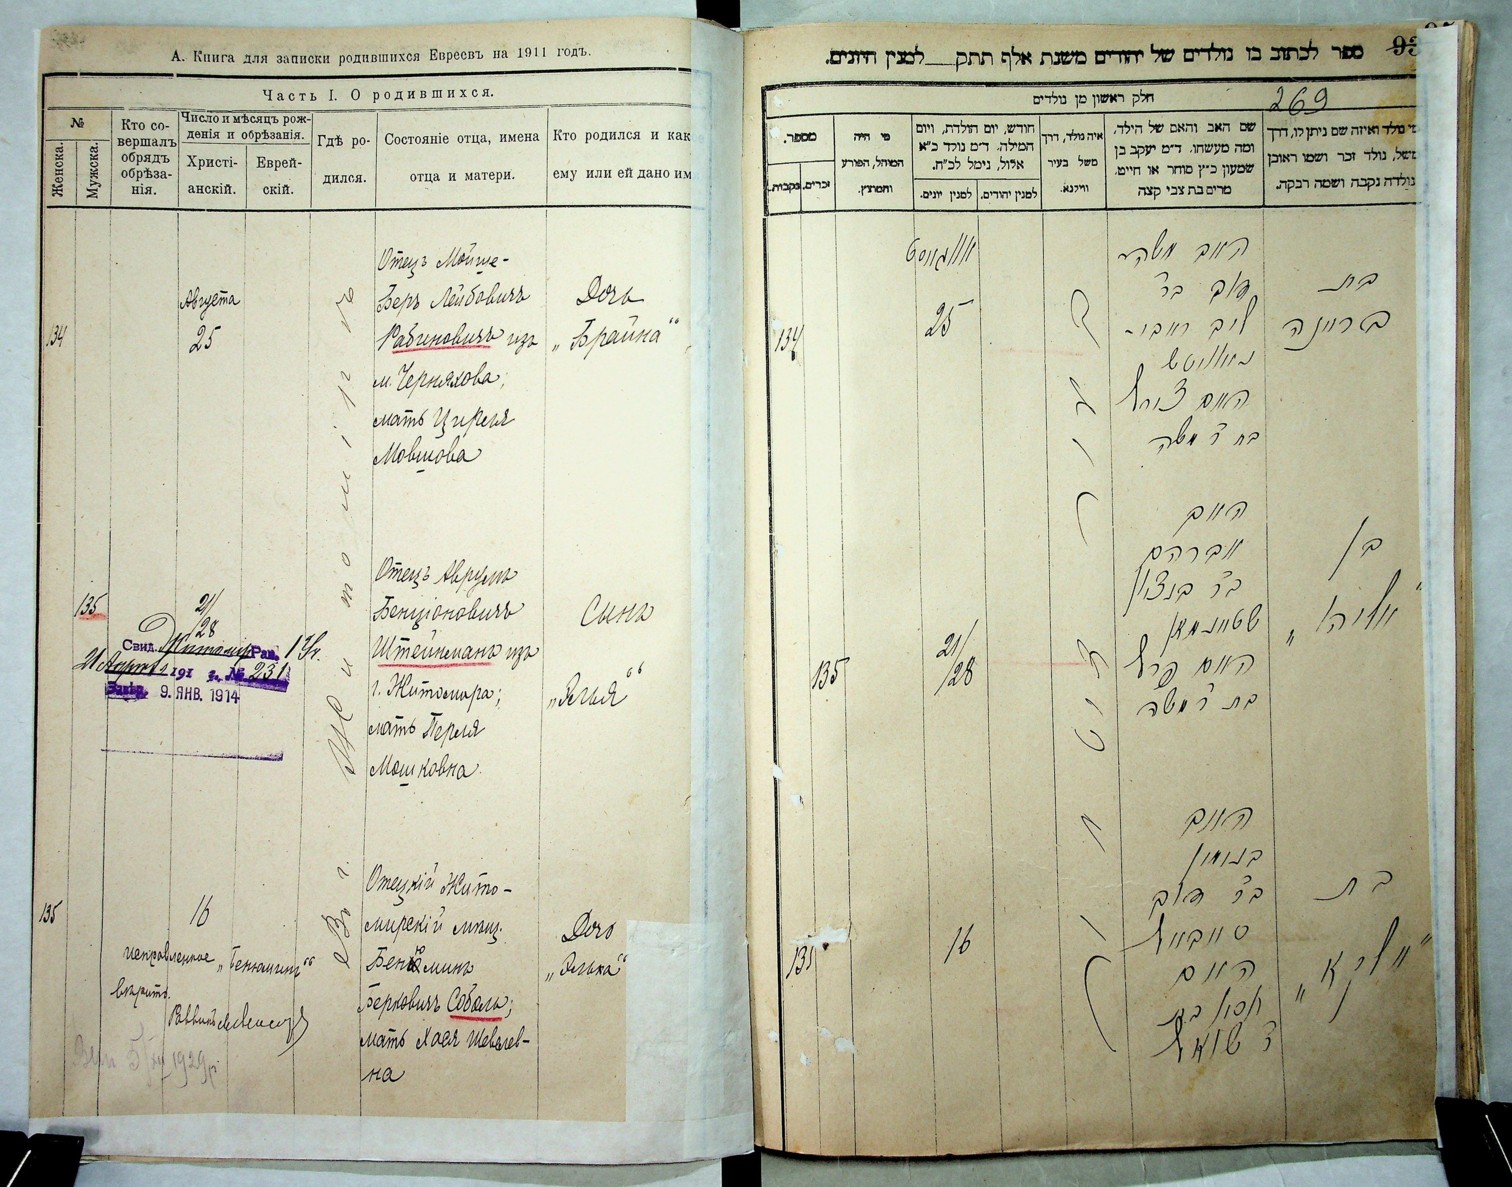 А. Книга для записки родившихся Евреевъ на 1911 годъ.
Часть I. О родившихся.
№
Женска.
Мужска.
Кто со-
вершалъ
обрядъ
обрѣза-
нія.
Число и мѣсяцъ рож-
денія и обрѣзанія.
Христі-
анскій.
Еврей-
скій.
Гдѣ ро-
дился.
Состояніе отца, имена
отца и матери.
Кто родился и как
ему или ей дано им
134
Августа
25
Отецъ Мойше-
Беръ Лейбовичъ
Рабиновичъ изъ
м. Черняхова;
мать Циреля
Мовшова
Дочь
„Брайна“
Въ г. Житомірѣ
135
21/28
Отецъ Аврумъ
Бенціоновичъ
Штейнманъ изъ
г. Житомира;
мать Перля
Мошковна.
Сынъ
„Элья“
Свид. Житомір Рав.
21 Апрѣля 191 г. № 231
9. ЯНВ. 1914
135
16
Отецъ Жито-
мирскій мѣщ.
Бенюминъ
Берковичъ Соболь;
мать Хая Шевелев-
на
Дочь
„Элька“
исправленное „Бенюминъ“
вѣрить.
Раввинъ
1929 г.
93
ספר לכתוב בו נולדים של יהודים משנת אלף תתק למנין היונים.
חלק ראשון מן נולדים
269
מספר.
נקבות.
זכרים.
מי היה
המוהל, הפורע
והמוצץ.
חודש, יום הולדת, ויום
המילה. ד״מ נולד כ״א
אלול, נימל לכ״ח.
למנין יונים.
למנין יהודים.
איה נולד, דרך
משל בעיר
ווילנא.
שם האב והאם של הילד,
ומה מעשהו. ד״מ יעקב בן
שמעון כ״ץ סוחר או חייט.
מרים בת צבי קצה
מי נולד ואיזה שם ניתן לו, דרך
משל, נולד זכר ושמו ראובן
נולדה נקבה ושמה רבקה.
134
אווגוסט
25
האב משה
דוב בר
ליב ראבי-
נאוויטש
האם צירל
בת ר׳ משה
בת
בריינה
135
21/28
האב
אברהם
בר בנציון
שטיינמאן
האם פרל
בת ר׳ משה
בן
„אליה“
135
16
האב
בנימין
בר דוב
סאבאל
האם
חיה בת
ר׳ שואל
בת
„אלקא“